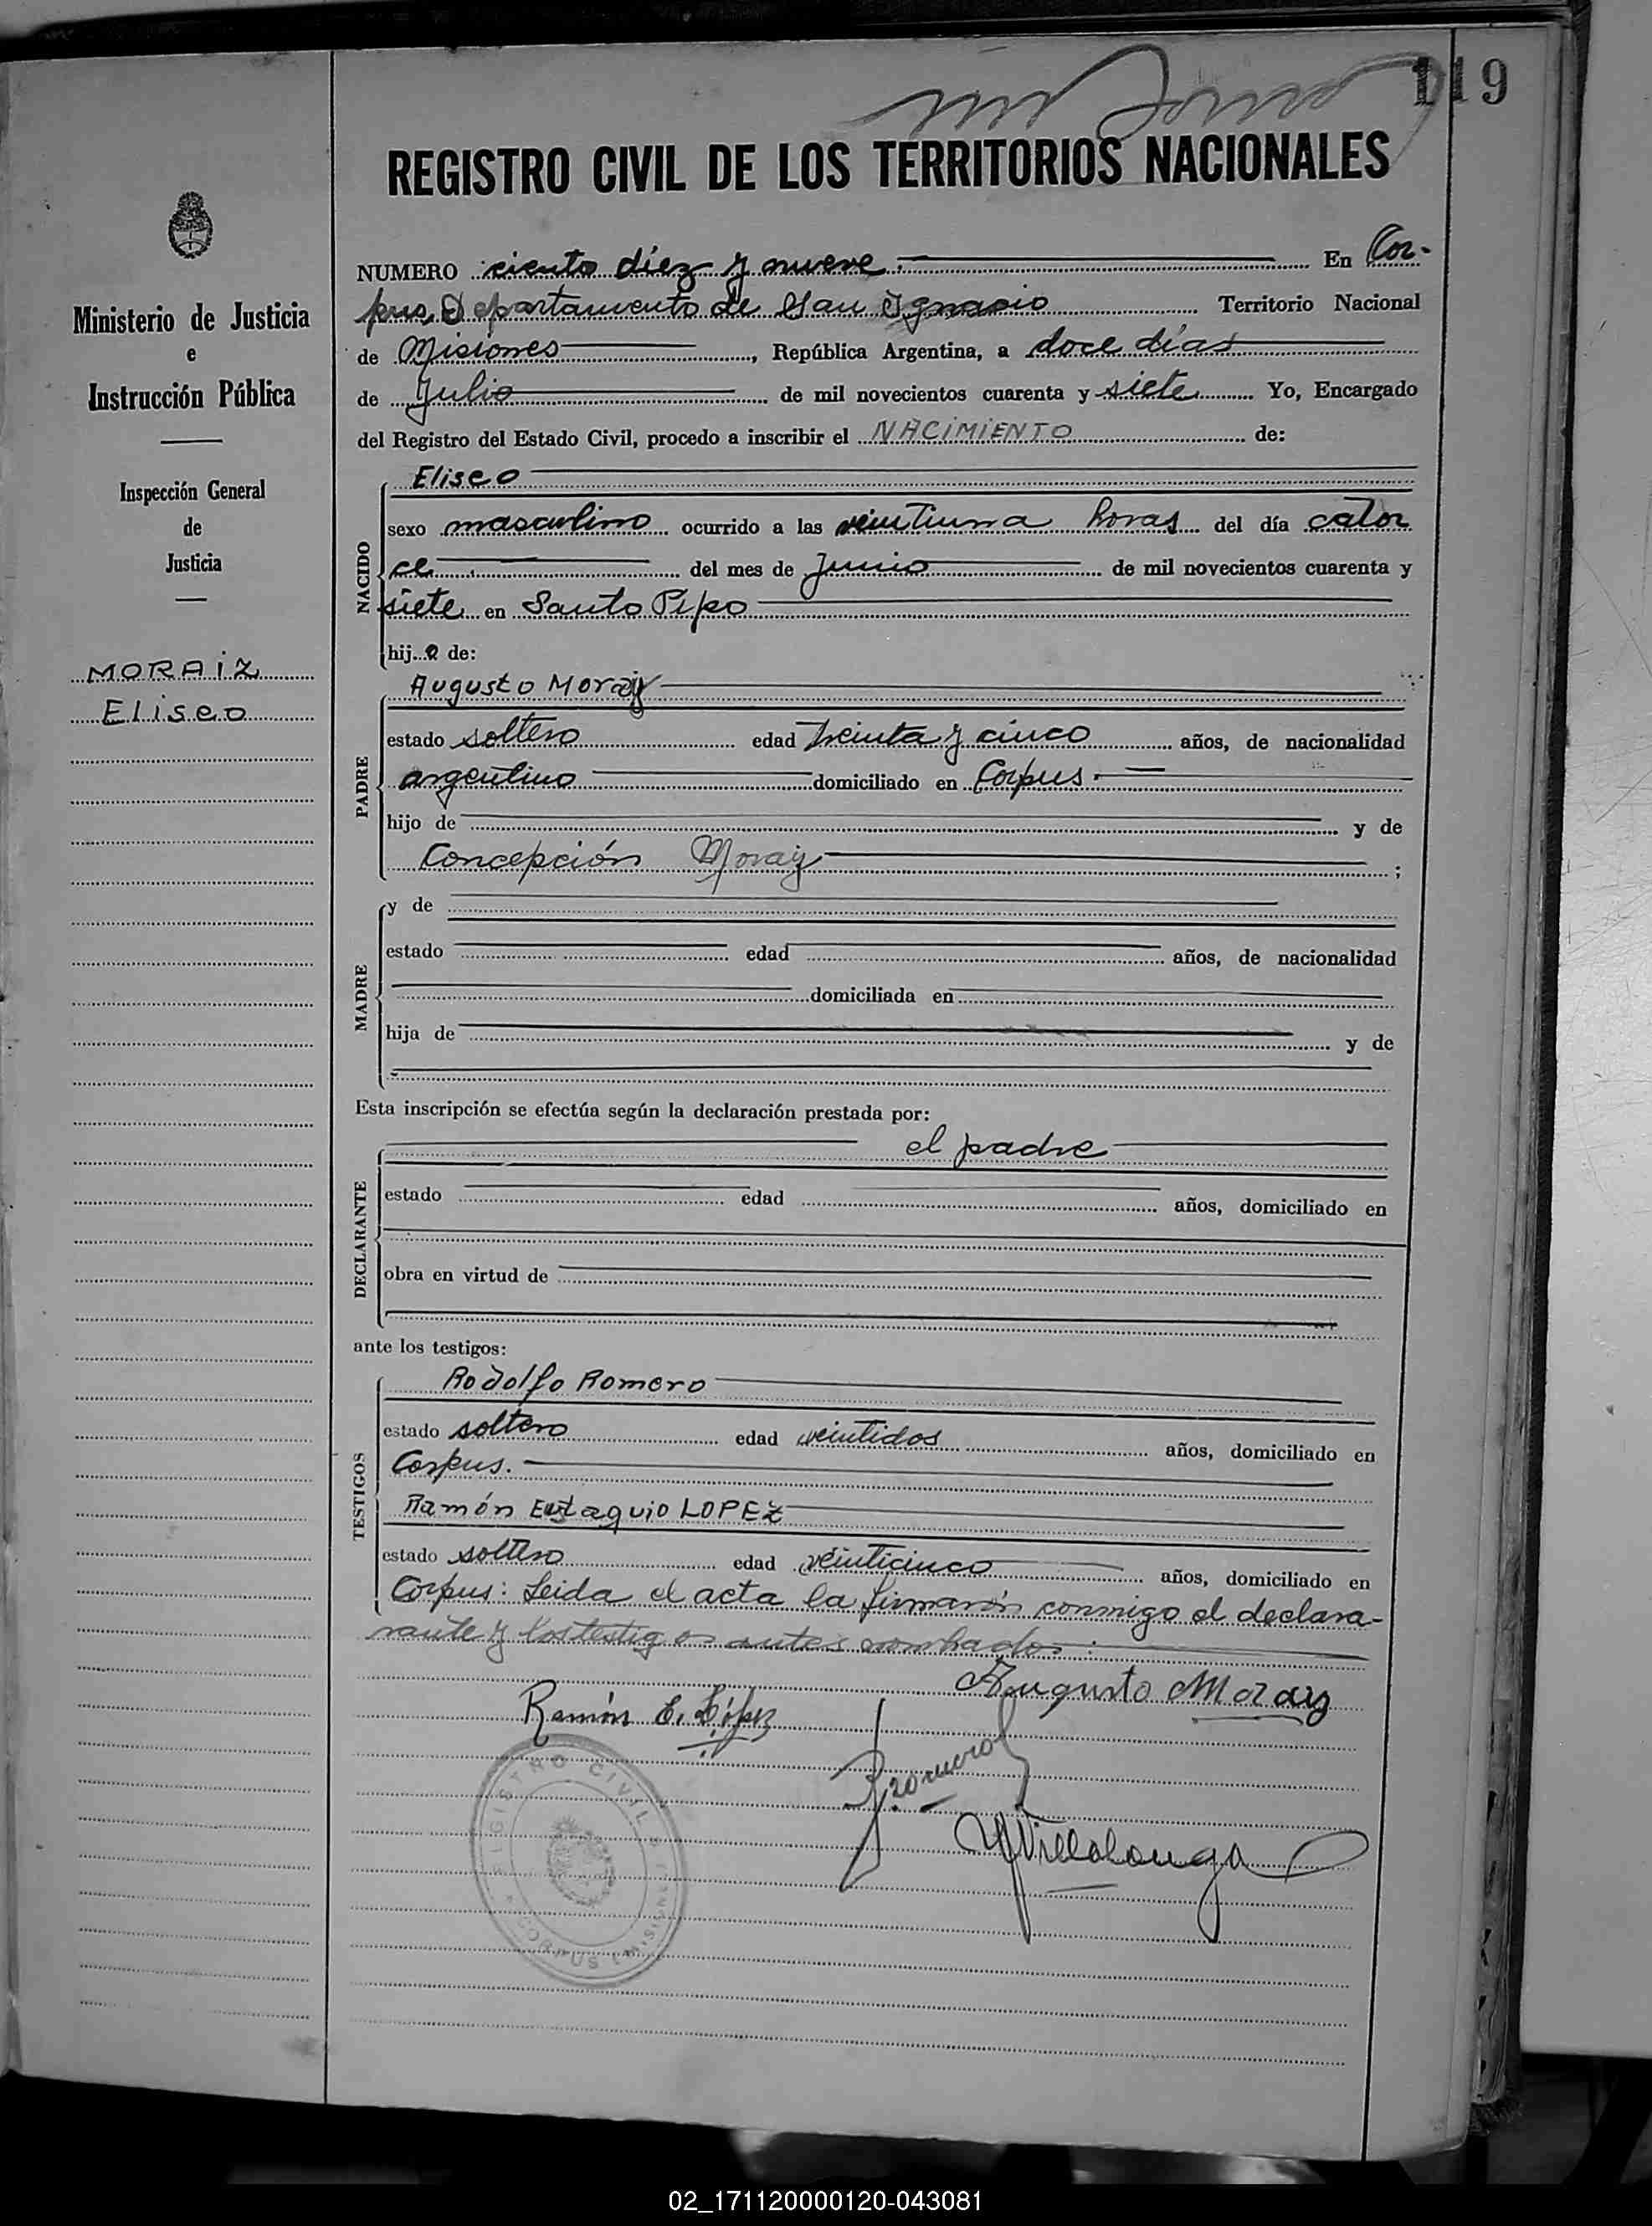 119
REGISTRO CIVIL DE LOS TERRITORIOS NACIONALES
Ministerio de Justicia
e
Instrucción Pública
Inspección General
de
Justicia
MORAIZ
Eliseo
NUMERO ciento diez y nueve. En Cor-
pus, Departamento de San Ignacio Territorio Nacional
de Misiones, República Argentina, a doce días
de Julio de mil novecientos cuarenta y siete Yo, Encargado
del Registro del Estado Civil, procedo a inscribir el NACIMIENTO de:
NACIDO
Eliseo
sexo masculino ocurrido a las veintiuna horas del día cator
ce del mes de Junio de mil novecientos cuarenta y
siete en Santo Pipo
hijo de:
PADRE
Augusto Moraiz
estado soltero edad treinta y cinco años, de nacionalidad
argentino domiciliado en Corpus.
hijo de y de
Concepción Moraiz ;
MADRE
y de
estado edad años, de nacionalidad
domiciliada en
hija de y de
Esta inscripción se efectúa según la declaración prestada por:
DECLARANTE
el padre
estado edad años, domiciliado en
obra en virtud de
ante los testigos:
TESTIGOS
Rodolfo Romero
estado soltero edad veintidos años, domiciliado en
Corpus.
Ramón Eustaquio LOPEZ
estado soltero edad veinticinco años, domiciliado en
Corpus: Leida el acta la firmarón conmigo el declara-
rante y los testigos antes nombrados:
Augusto Moraiz
Ramón E. López
Rromero
Villalonga
REGISTRO CIVIL
CORPUS (MISIONES)
02_171120000120-043081